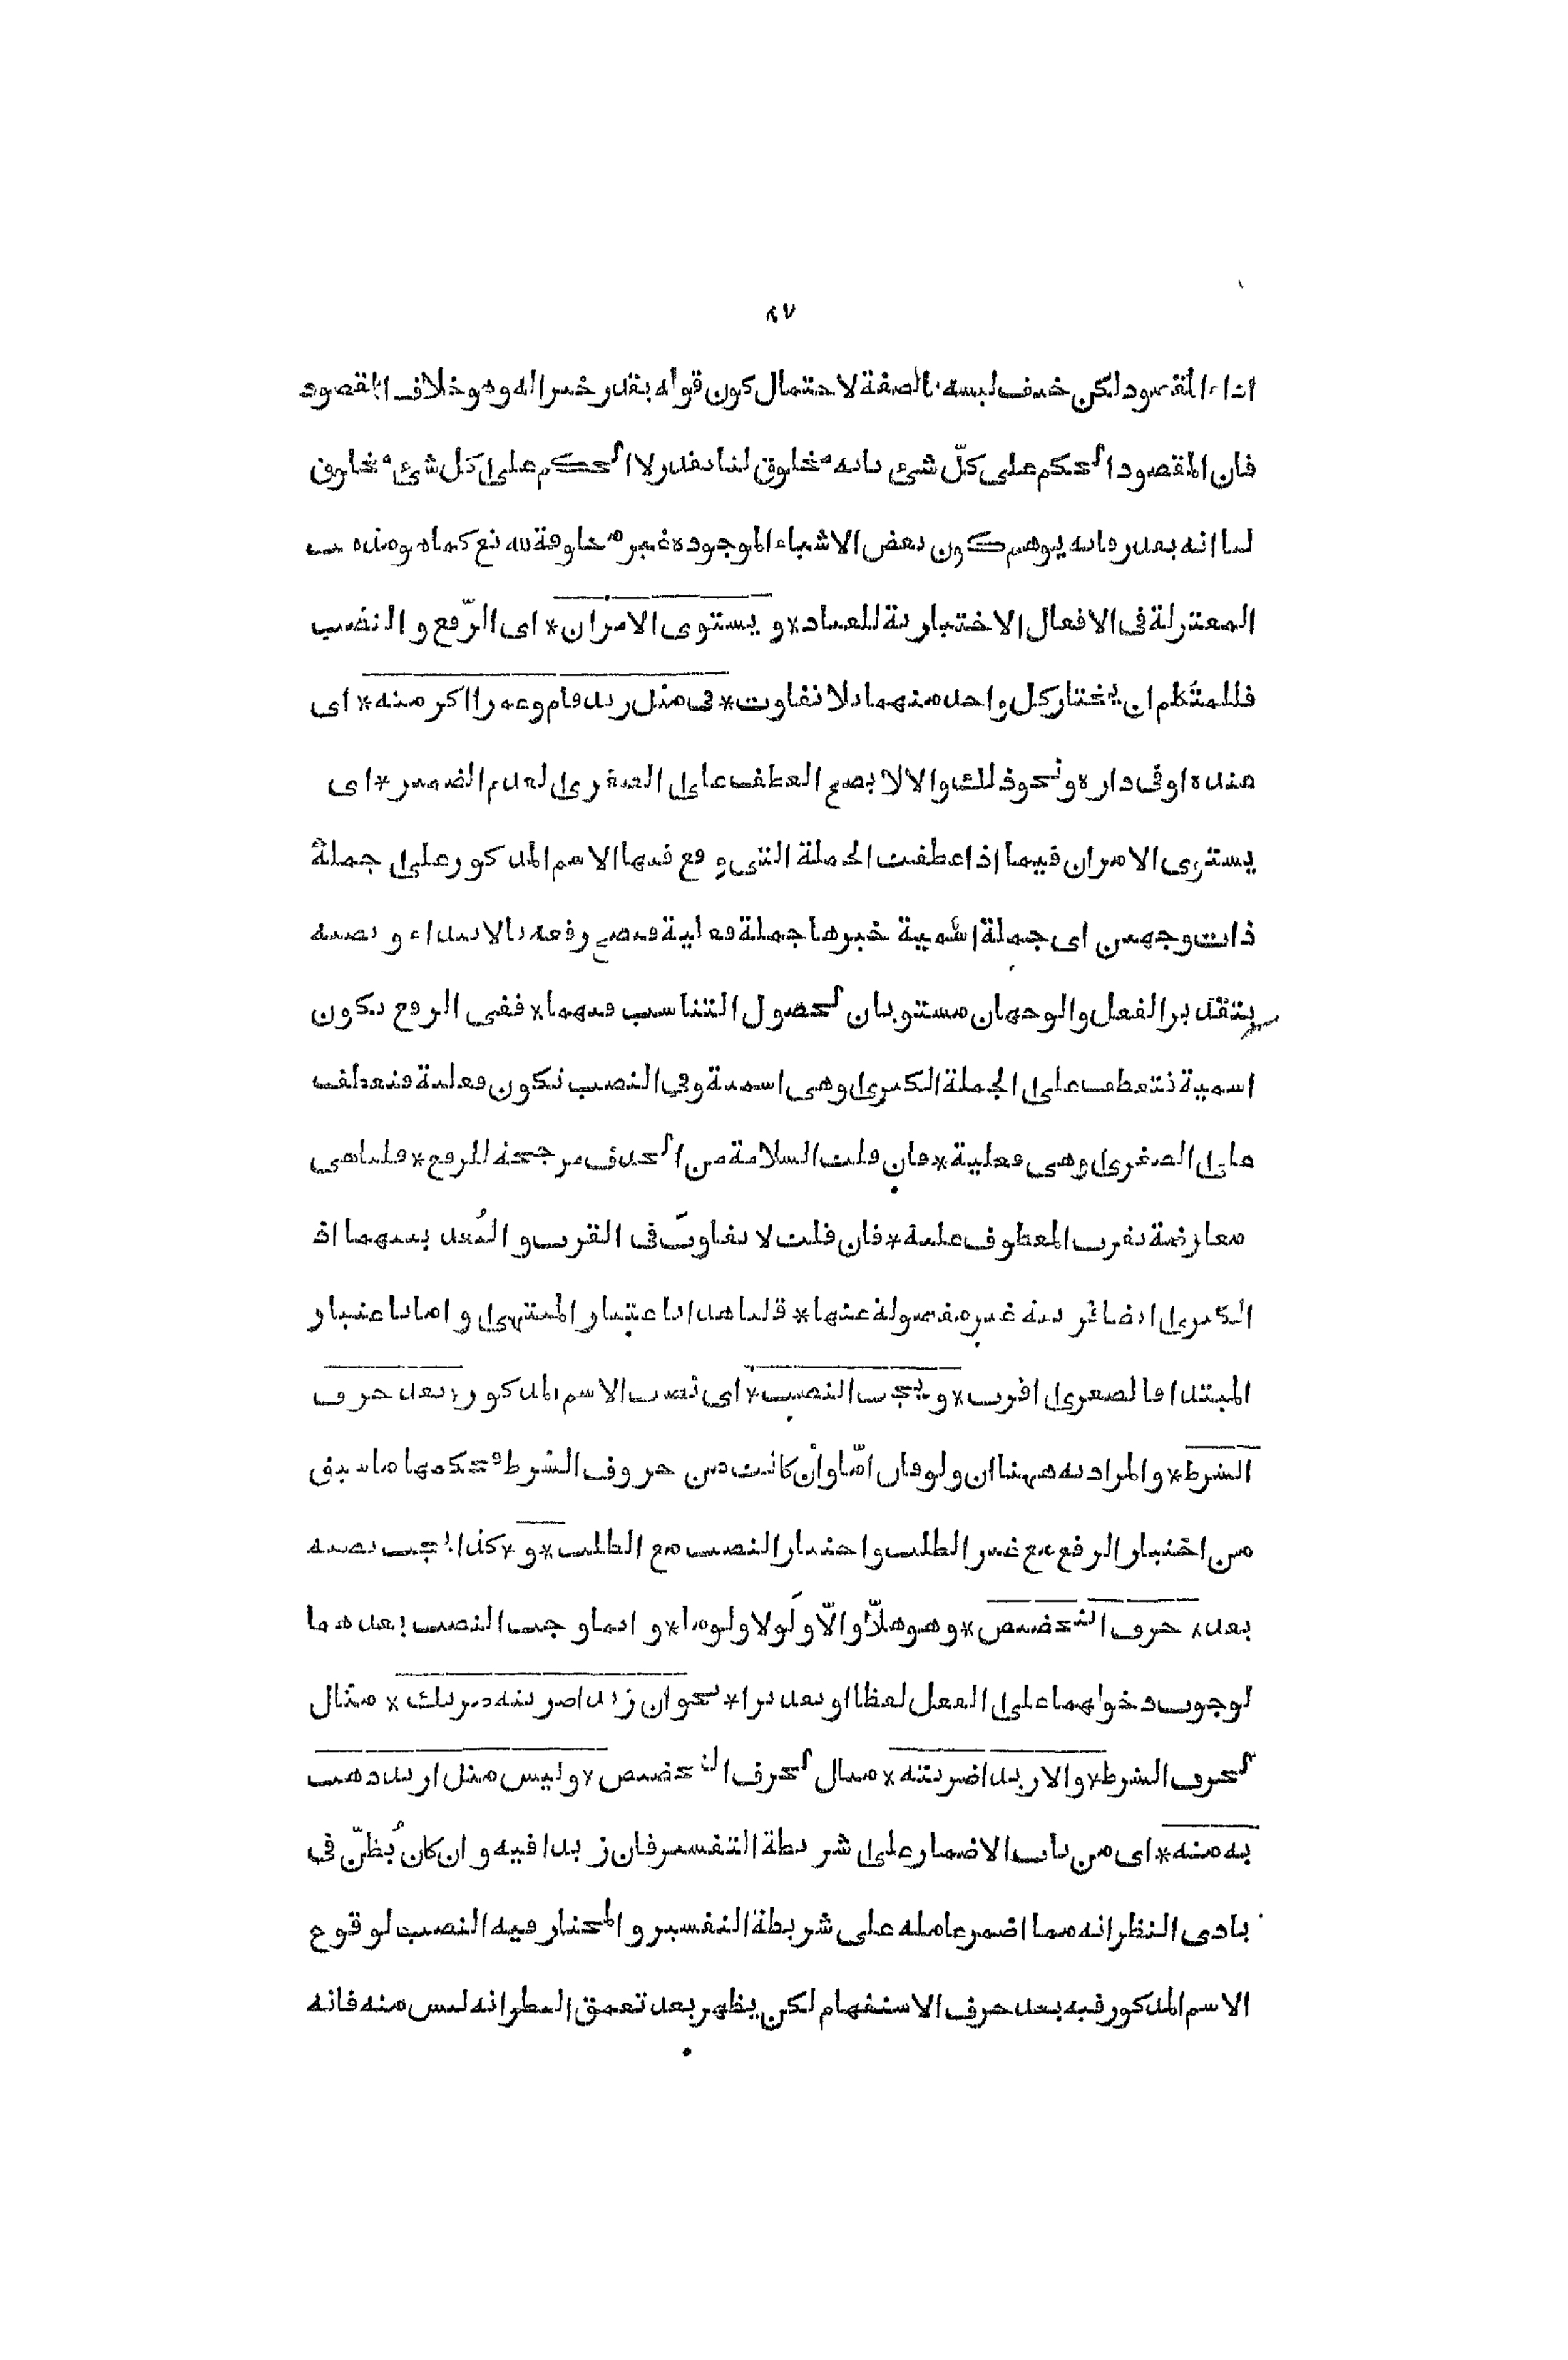 ٨٧
اداء المقصود لكن خيف لبسه بالصفة لاحتمال كون قوله بقدر خبرا له وهو خلاف المقصود
فان المقصود الحكم على كلّ شئ بانه مخلوق لنا بقدر لا الحكم على كل شئ مخلوق
لنا انه بقدر فانه يوهم كون بعض الاشياء الموجودة غير مخلوقة لله تع كما هو مذهب
المعتزلة فى الافعال الاختيارية للعباد * و يستوى الامران * اى الرّفع و النصب
فللمتكلم ان يختار كل واحد منهما بلا تفاوت * فى مثل زيد قام وعمرا اكرمته * اى
عنده او فى داره ونحو ذلك والا لا يصح العطف على الصغرى لعدم الضمير * اى
يستوى الامران فيما اذا عطفت الجملة التى وقع فيها الاسم المذكور على جملة
ذات وجهين اى جملة اسمية خبرها جملة فعلية فيصح رفعه بالابتداء و نصبه
بتقدير الفعل والوجهان مستويان لحصول التناسب فيهما * ففى الرفع يكون
اسمية فتعطف على الجملة الكبرى وهى اسمية وفى النصب تكون فعلية فتعطف
على الصغرى وهى فعلية * فان قلت السلامة من الحذف مرجحة للرفع * قلنا هى
معارضة بقرب المعطوف عليه * فان قلت لا تفاوت فى القرب و البُعد بينهما اذ
الكبرى ايضا غير مفصولة عنها * قلنا هذا باعتبار المنتهى و اما باعتبار
المبتدا فالصغرى اقرب * و يجب النصب * اى نصب الاسم المذكور * بعد حرف
الشرط * و المراد به ههنا ان و لو فان امّا وأن كانت من حروف الشرط فحكمها ما سبق
من اختيار الرفع مع غير الطلب و اختيار النصب مع الطلب * و * كذا يجب نصبه
بعد * حرف التحضيض * وهو هلّا و الّا و لَولا ولوما * و انما وجب النصب بعدهما
لوجوب دخولهما على الفعل لفظا او تقديرا * نحو ان زيدا ضربته ضربك * مثال
لحرف الشرط * و الا زيدا ضربته * مثال لحرف التحضيض * و ليس مثل ازيد ذهب
به منه * اى من باب الاضمار على شريطة التفسير فان زيدا فيه و ان كان يُظنّ فى
بادى النظر انه مما اضمر عامله على شريطة التفسير و المختار فيه النصب لوقوع
الاسم المذكور فيه بعد حرف الاستفهام لكن يظهر بعد تعمق النظر انه ليس منه فانه